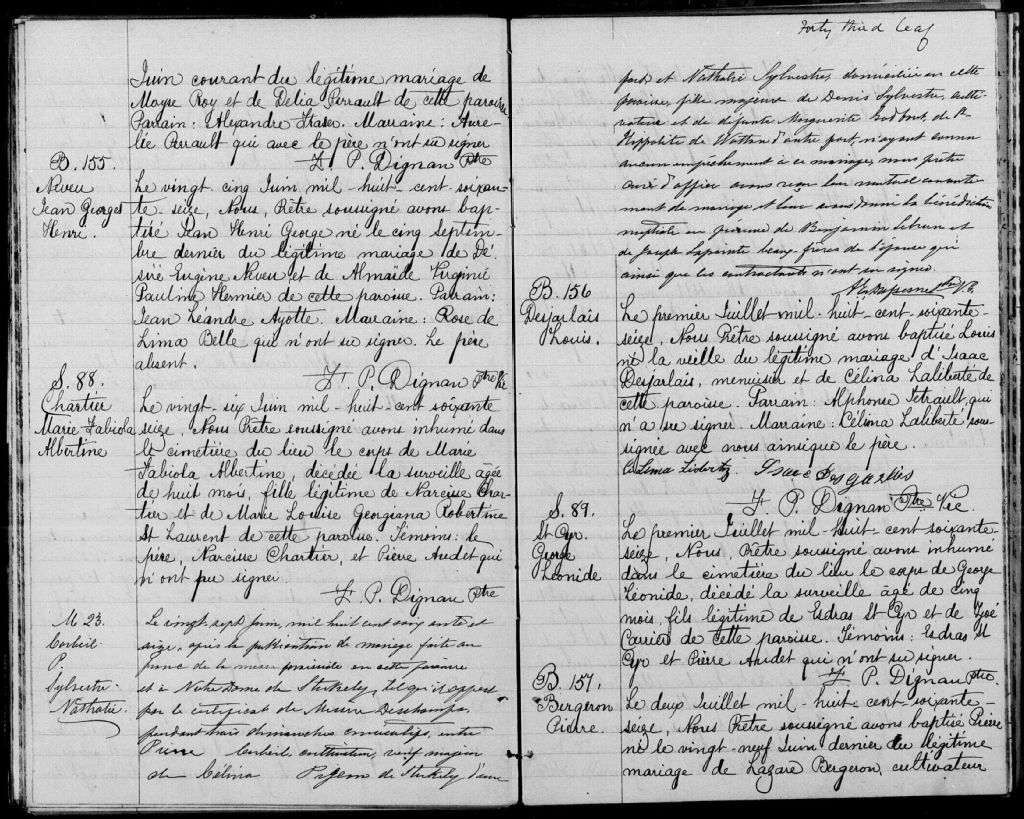 Juin courant du légitime mariage de
Moyse Roy et de Delia Perrault de cette paroisse
Parrain: Alexandre Fraser. Marraine: Aure-
lie Perrault qui avec le père n'ont su signer
F. P. Dignan Ptre
B. 155.
Niveu
Jean Georges
Henri.
Le vingt cinq Juin mil-huit-cent soixan-
te-seize, Nous, Prêtre soussigné avons bap-
tisé Jean Henri George né le cinq septem-
bre dernier du légitime mariage de Dé-
siré Eugène Niveu et de Almaïde Virginie
Pauline Hermier de cette paroisse. Parrain:
Jean Léandre Ayotte. Marraine: Rose de
Lima Belle qui n'ont su signer. Le père
absent.
F. P. Dignan Ptre Vic
S. 88.
Chartier
Marie Fabiola
Albertine
Le vingt-six Juin mil-huit-cent soixante
seize, Nous Prêtre soussigné avons inhumé dans
le cimetière du lieu le corps de Marie
Fabiola Albertine, décédée la surveille âgée
de huit mois, fille légitime de Narcisse Char-
tier et de Marie Louise Georgiana Robertine
St Laurent de cette paroisse. Témoins: le
père, Narcisse Chartier, et Pierre Audet qui
n'ont pu signer
F. P. Dignan Ptre
M 23.
Corbeil
P.
Sylvestre
Nathalie.
Le vingt-sept juin, mil huit cent soixante et
seize, après la publication de mariage faite au
prône de la messe paroissiale en cette paroisse
et à Notre Dame de Stukely, tel qu'il appert
par le certificat de Messire Deschamps,
pendant trois dimanches consécutifs, entre
Pierre Corbeil cultivateur, veuf majeur
de Célina Pigeon de Stukely d'une
Forty third leaf
part, et Nathalie Sylvestre, domiciliée en cette
paroisse, fille majeure de Denis Sylvestre, culti-
vateur et de défunte Marguerite Godbout, de St
Hippolite de Wotton d'autre part, n'ayant connu
aucun empêchement à ce mariage, nous prêtre
curé d'office avons reçu leur mutuel consente-
ment de mariage et leur avons donné la bénédiction
nuptiale en présence de Benjamin Lebrun et
de Joseph Lapointe beaux-frères de l'épouse qui
ainsi que les contractants n'ont su signer.
B. 156
Desjarlais
Louis.
Le premier Juillet mil-huit-cent-soixante-
seize, Nous Prêtre soussigné avons baptisé Louis
né la veille du légitime mariage d'Isaac
Desjarlais, menuisier et de Célina Laliberté de
cette paroisse. Parrain: Alphonse Tétrault qui
n'a su signer. Marraine: Célima Laliberté sous-
signée avec nous ainsi que le père.
F. P. Dignan Ptre Vic.
S. 89.
St Cyr.
George
Léonide
Le premier Juillet mil-huit-cent soixante-
seize, Nous, Prêtre soussigné avons inhumé
dans le cimetière du lieu le corps de George
Léonide, décédé la surveille âgé de cinq
mois, fils légitime de Esdras St Cyr et de Zoé
Carrier de cette paroisse. Témoins: Esdras St
Cyr et Pierre Audet qui n'ont su signer.
F. P. Dignan Ptre.
B. 157.
Bergeron
Pierre.
Le deux Juillet mil-huit-cent-soixante-
seize, Nous Prêtre soussigné avons baptisé Pierre
né le vingt-neuf Juin dernier du légitime
mariage de Lazare Bergeron, cultivateur